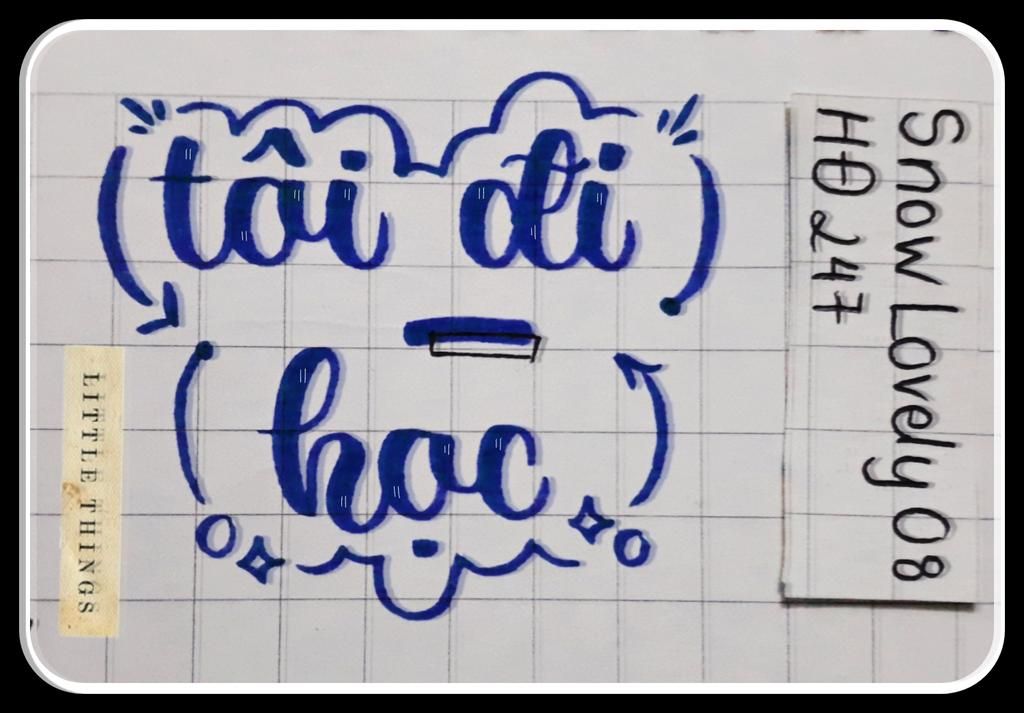 tôi đi
học
LITTLE THINGS
Snow Lovely 08
HĐ 247